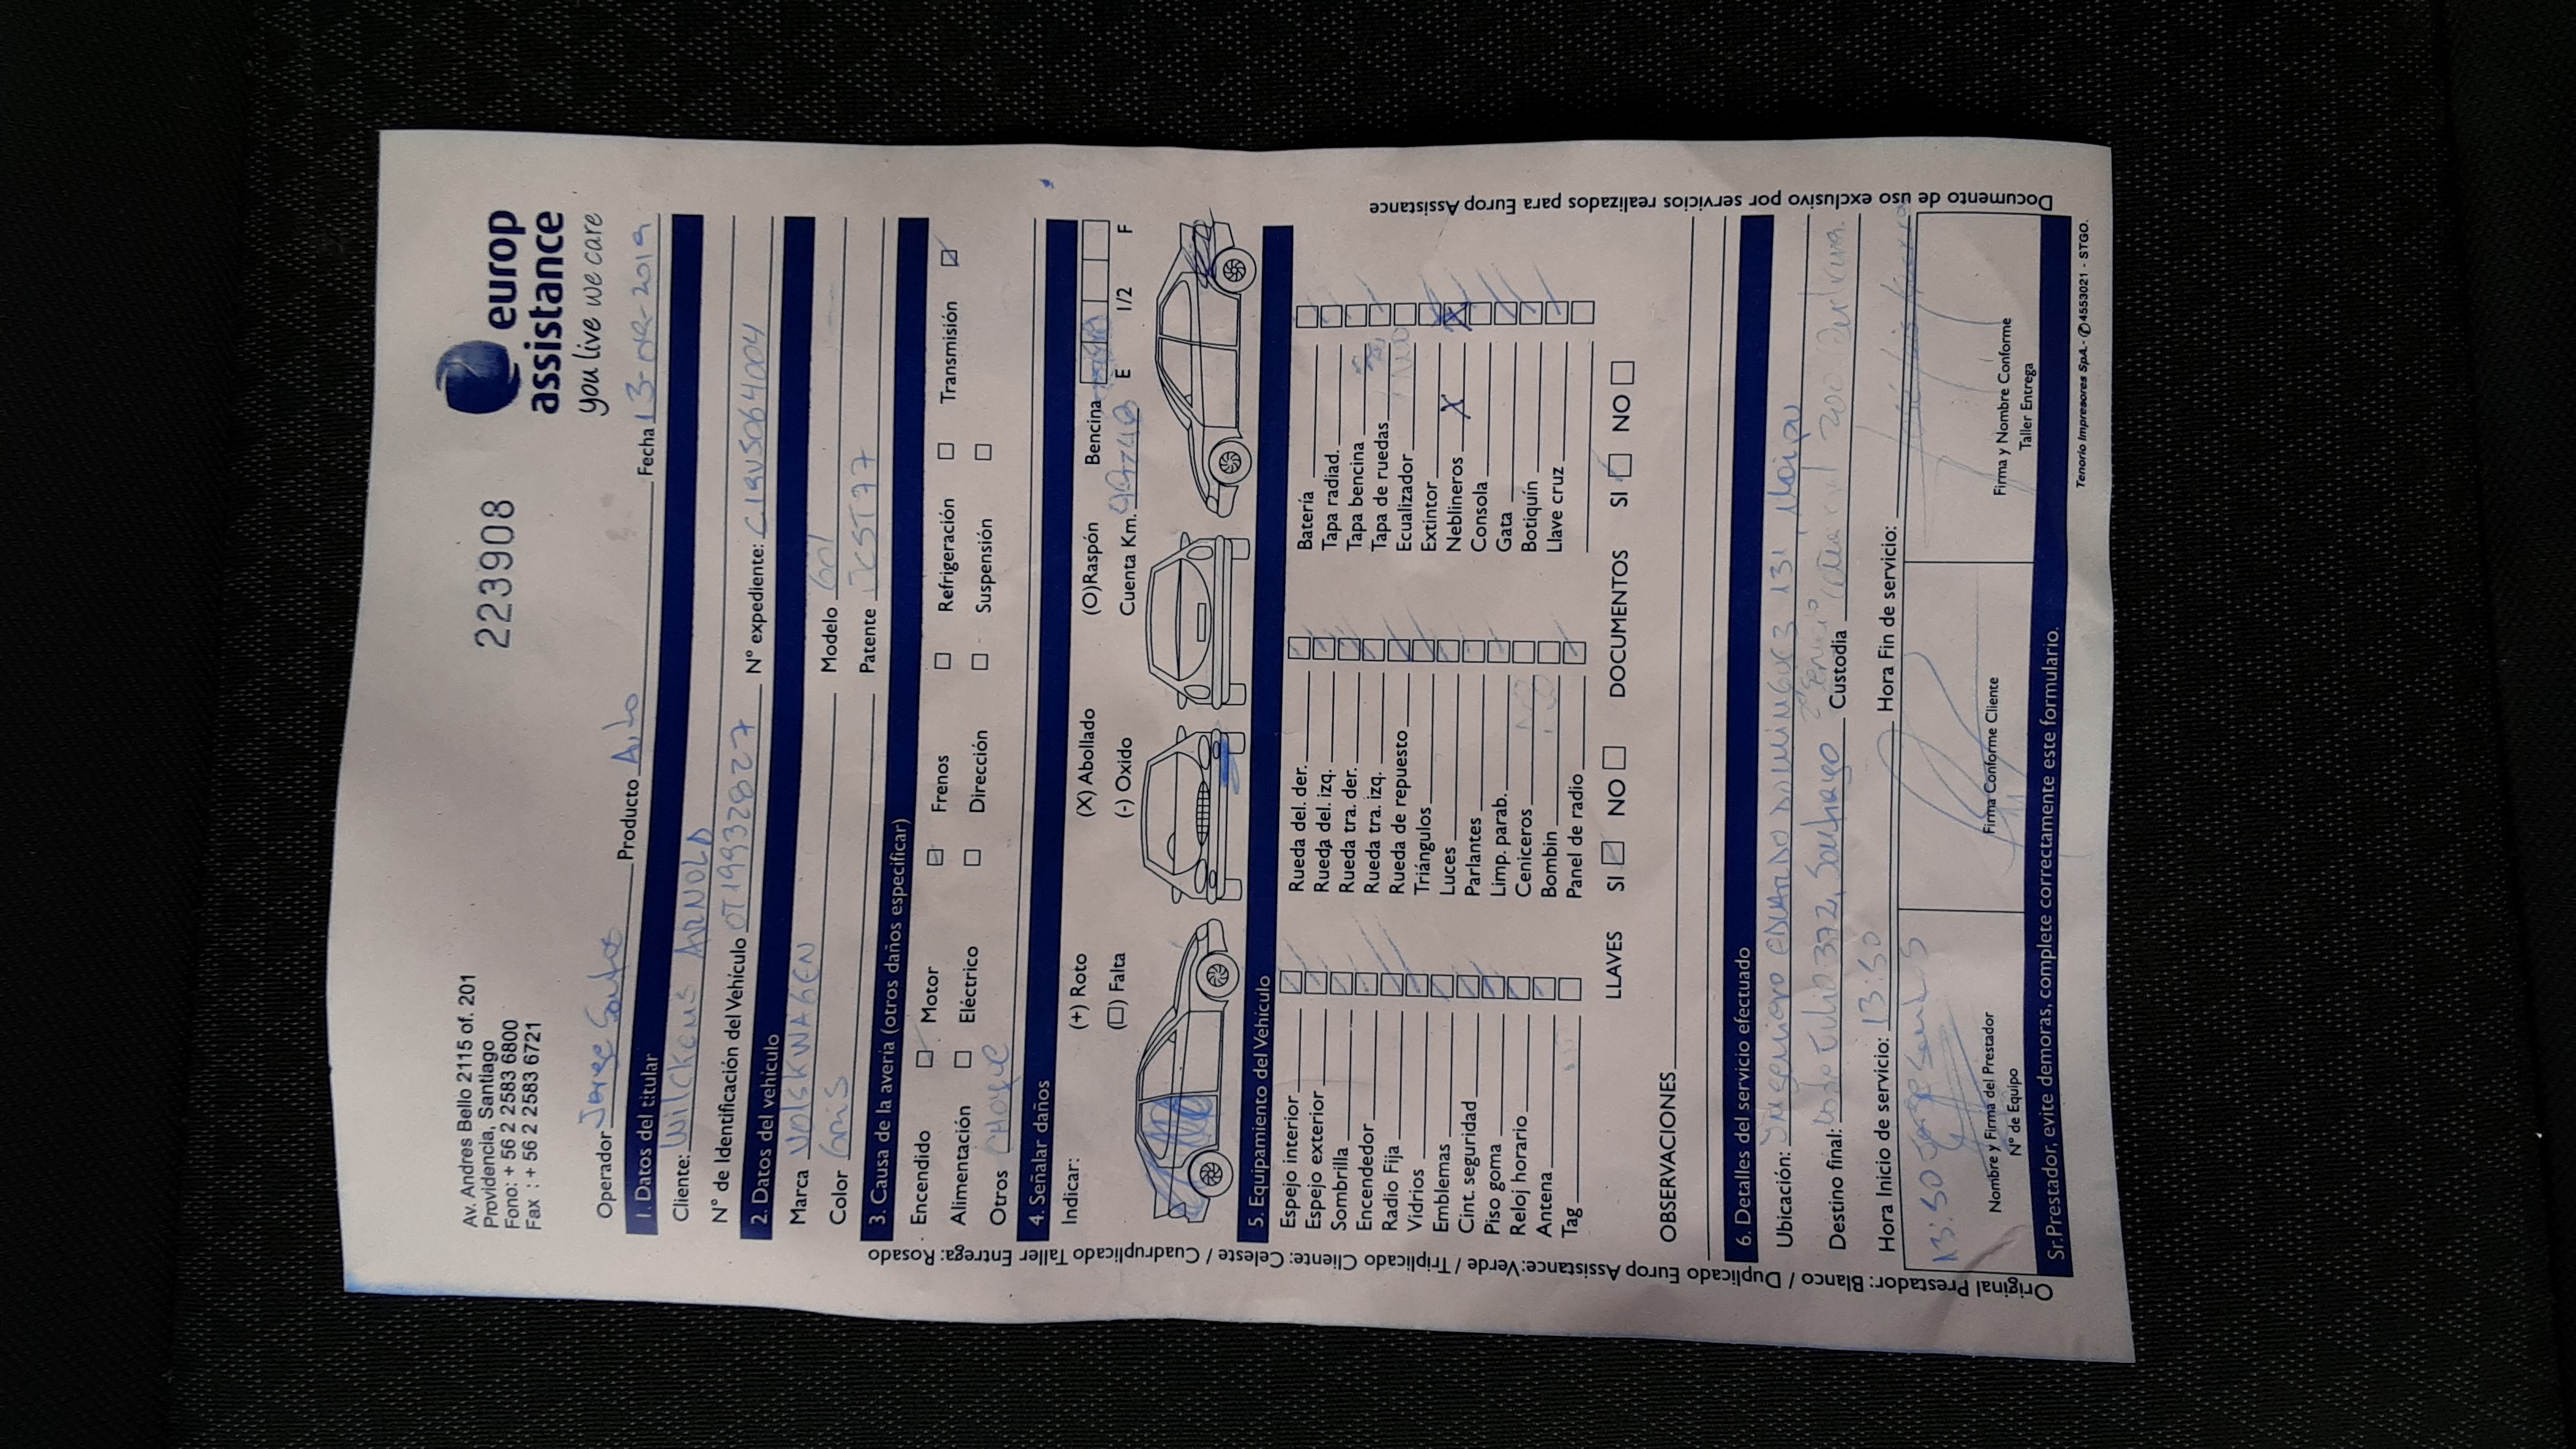 Av. Andres Bello 2115 of. 201
Providencia, Santiago
Fono: + 56 2 2583 6800
Fax : + 56 2 2583 6721
223908
europ
assistance
you live we care
Operador Jorge Santos Producto Auto Fecha 13-09-2019
1. Datos del titular
Cliente: Wilckens ARNOLD
N° de Identificación del Vehículo OT19932827 N° expediente: C19VS064004
2. Datos del vehículo
Marca VOLSKWAGEN Modelo Gol
Color Gris Patente JCST77
3. Causa de la avería (otros daños especificar)
Encendido Motor Frenos Refrigeración Transmisión
Alimentación Eléctrico Dirección Suspensión
Otros CHOQUE
4. Señalar daños
Indicar: (+) Roto (X) Abollado (O)Raspón Bencina
(□) Falta (-) Oxido Cuenta Km. E 1/2 F
5. Equipamiento del Vehículo
Espejo interior Rueda del. der. Batería
Espejo exterior Rueda del. izq. Tapa radiad.
Sombrilla Rueda tra. der. Tapa bencina
Encendedor Rueda tra. izq. Tapa de ruedas
Radio Fija Rueda de repuesto Ecualizador NO
Vidrios Triángulos Extintor
Emblemas Luces Neblineros X
Cint. seguridad Parlantes Consola
Piso goma Limp. parab. Gata
Reloj horario Ceniceros NO Botiquín
Antena Bombin NO Llave cruz
Tag Panel de radio
LLAVES SI NO DOCUMENTOS SI NO
OBSERVACIONES
6. Detalles del servicio efectuado
Ubicación: Ingeniero EDUARDO DOMINGUEZ 131, Maipu
Destino final: 372, Santiago Custodia
Hora Inicio de servicio: 13:50 Hora Fin de servicio:
13:50 Jorge Santos
Nombre y Firma del Prestador
N° de Equipo
Firma Conforme Cliente
Firma y Nombre Conforme
Taller Entrega
Sr.Prestador, evite demoras, complete correctamente este formulario.
Tenorio Impresores SpA.- ✆4553021 - STGO.
Original Prestador: Blanco / Duplicado Europ Assistance:Verde / Triplicado Cliente: Celeste / Cuadruplicado Taller Entrega: Rosado
Documento de uso exclusivo por servicios realizados para Europ Assistance